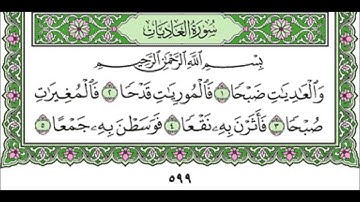 سورة العاديات
بِسْمِ ٱللَّهِ ٱلرَّحْمَٰنِ ٱلرَّحِيمِ
وَٱلْعَٰدِيَٰتِ ضَبْحًا ١ فَٱلْمُورِيَٰتِ قَدْحًا ٢ فَٱلْمُغِيرَٰتِ
صُبْحًا ٣ فَأَثَرْنَ بِهِۦ نَقْعًا ٤ فَوَسَطْنَ بِهِۦ جَمْعًا ٥
٥٩٩